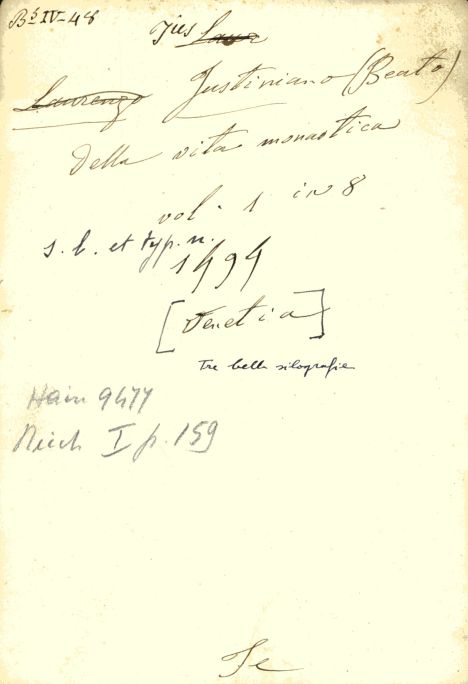 Bª IV-48
Jus Laur
Laurenzo Justiniano (Beato)
Della vita monastica
vol. 1 in 8
s. l. et typ. n.
1494
[Venetia]
Tre belle silografie
Hain 9477
I p. 159